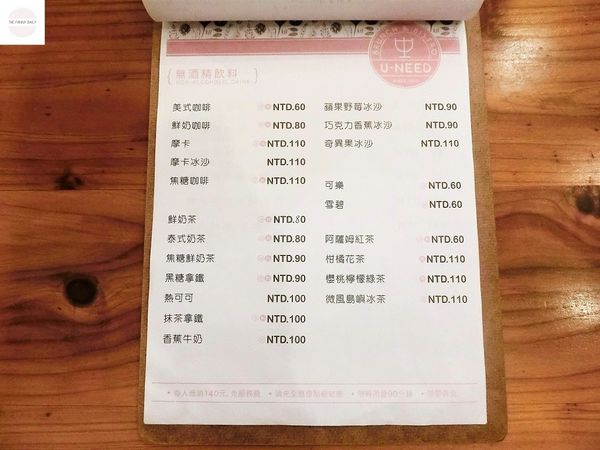 THE FUNNY DAILY
BRUNCH & BISTRO
U·NEED
無酒精飲料
NON-ALCOHOLIC DRINK
美式咖啡 NTD.60
鮮奶咖啡 NTD.80
摩卡 NTD.110
摩卡冰沙 NTD.110
焦糖咖啡 NTD.110
鮮奶茶 NTD.80
泰式奶茶 NTD.80
焦糖鮮奶茶 NTD.90
黑糖拿鐵 NTD.90
熱可可 NTD.100
抹茶拿鐵 NTD.100
香蕉牛奶 NTD.100
蘋果野莓冰沙 NTD.90
巧克力香蕉冰沙 NTD.90
奇異果冰沙 NTD.110
可樂 NTD.60
雪碧 NTD.60
阿薩姆紅茶 NTD.60
柑橘花茶 NTD.110
櫻桃檸檬綠茶 NTD.110
微風島嶼冰茶 NTD.110
•每人低消140元,免服務費 •請先至櫃檯點餐結帳 •用餐限時90分鐘